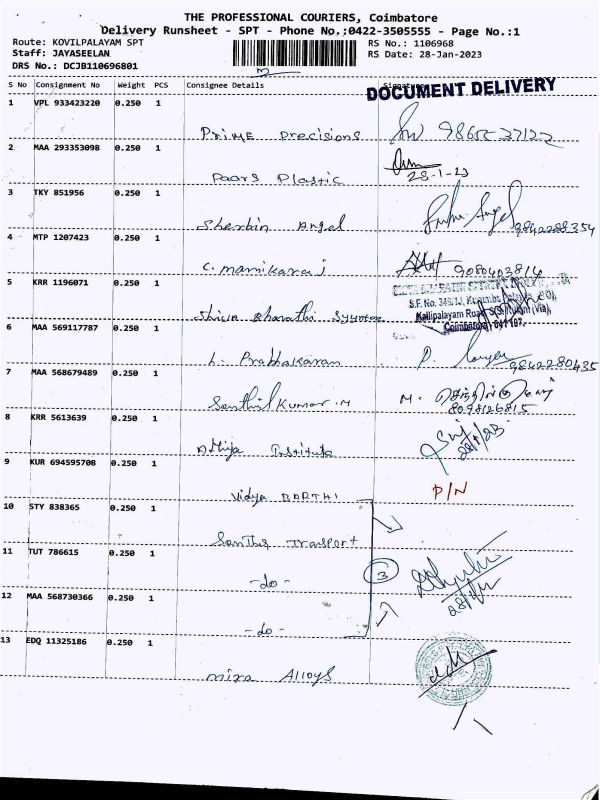 THE PROFESSIONAL COURIERS, Coimbatore
Delivery Runsheet - SPT - Phone No.:0422-3505555 - Page No.:1
Route: KOVILPALAYAM SPT RS No.: 1106968
Staff: JAYASEELAN RS Date: 28-Jan-2023
DRS No.: DCJB110696801
S No Consignment No Weight PCS Consignee Details Signature
DOCUMENT DELIVERY
1 VPL 933423220 0.250 1
Prime Precisions
2 MAA 293353098 0.250 1
Paars Plastic 28-1-23
3 TKY 851956 0.250 1
Sherbin Angel 9842288354
4 MTP 1207423 0.250 1
C. Manikaraj 9080403814
5 KRR 1196071 0.250 1
Shiva Bharathi
Coimbatore - 641 107.
6 MAA 569117787 0.250 1
L. Prabhakaran 9842280435
7 MAA 568679489 0.250 1
Senthil Kumar .M M. செந்தில்குமார்
8098126815
8 KRR 5613639 0.250 1
9 KUR 694595708 0.250 1
Vidya BARTHI P/N
10 STY 838365 0.250 1
Santhy Transport
11 TUT 786615 0.250 1
-do- 3
12 MAA 568730366 0.250 1
-do-
13 EDQ 11325186 0.250 1
Alloys